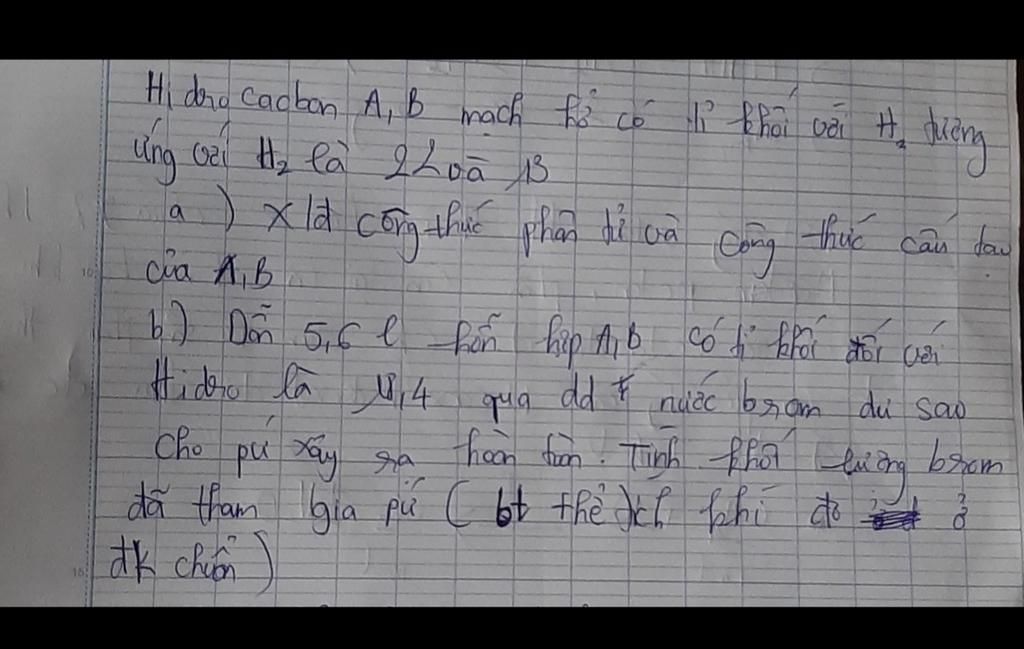 Hiđrocacbon A, B mạch hở có tỉ khối với H2 tương
ứng với H2 là 22 và 13
a) Xđ công thức phân tử và công thức cấu tạo
của A, B
b) Dẫn 5,6 l hỗn hợp A, B có tỉ khối đối với
Hiđro là 18,4 qua dd nước brom dư sao
cho pứ xảy ra hoàn toàn. Tính khối lượng brom
đã tham gia pứ ( bt thể tích khí đo ở
đk chuẩn )